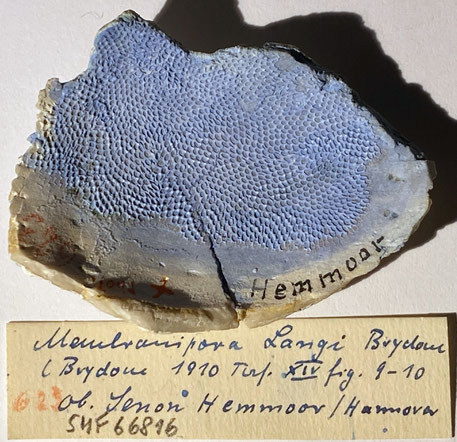 Hemmoor
Membranipora Langi Brydone
(Brydone 1910 Taf. XIV fig. 9-10
623 Ob. Senon Hemmoor/Hannover
SMF 66816